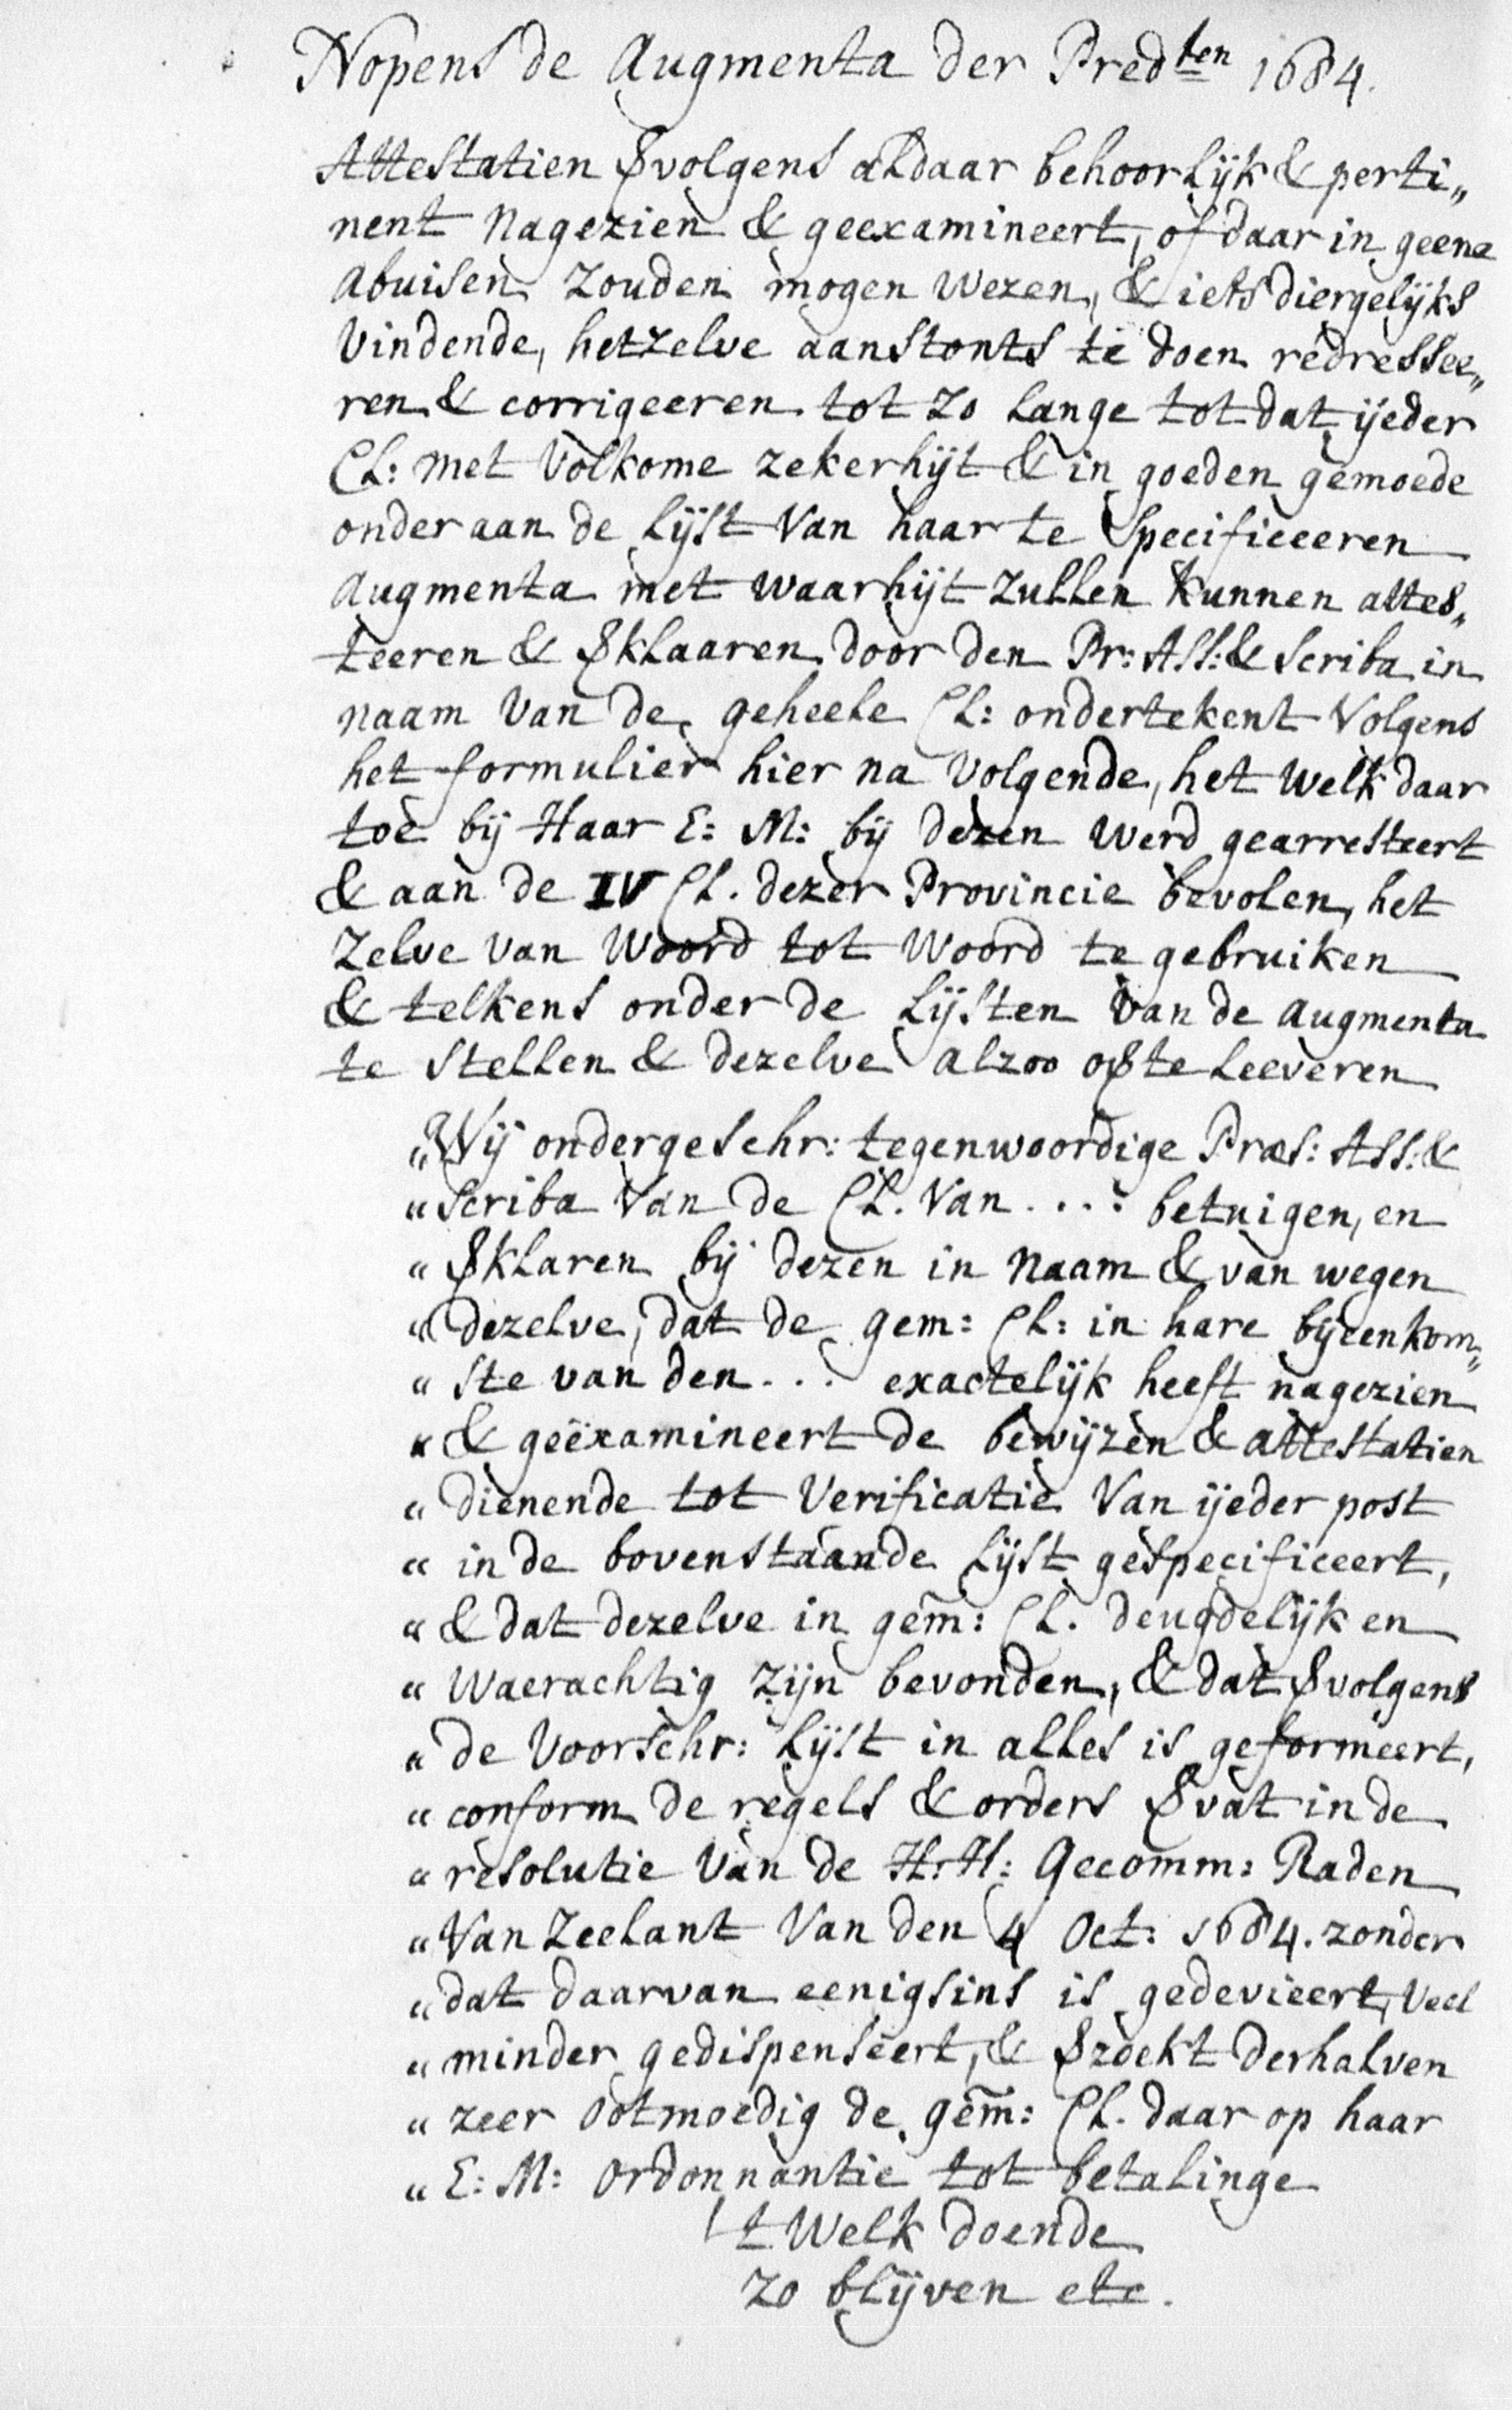 Nopens de Augmenta der Predten 1684.
Attestatien Svolgens aldaar behoorlijk & perti„
nent nagezien & geexamineert, of daar in geene
abuisen zouden mogen wezen, & iets diergelijks
vindende, hetzelve aanstonts te doen redressee„
ren & corrigeeren tot zo lange tot dat ijeder
Cl: met volkome zekerhijt & in goeden gemoede
onder aan de Lijst van haar te specificeeren
Augmenta met waarhijt zullen kunnen attes„
teeren & Sklaaren door den Pr: Ass: & Scriba in
naam van de geheele Cl: ondertekent volgens
het formulier hier na volgende, het welk daar
toe bij Haar E: M: bij dezen werd gearresteert
& aan de IV Cl. dezer Provincie bevolen, het
zelve van woord tot woord te gebruiken
& telkens onder de Lijsten van de augmenta
te stellen & dezelve alzoo oSte leeveren
„Wij ondergeschr: tegenwoordige Præs: Ass: &
“ Scriba van de Cl. van . . . : betuigen, en
“ Sklaren bij dezen in naam & van wegen
“ dezelve, dat de gem: Cl: in hare bijeenkom„
“ ste van den . . . exactelijk heeft nagezien
“ & geëxamineert de bewijzen & attestatien
“ dienende tot verificatie van ijeder post
“ in de bovenstaande Lijst gespecificeert,
“ & dat dezelve in gem̃: Cl. deugdelijk en
“ waerachtig zijn bevonden, & dat Svolgens
“ de voorschr: Lijst in alles is geformeert,
“ conform de regels & orders Svat in de
“ resolutie van de H: H: Gecomm: Raden
“ van Zeelant van den 4 Oct: 1684. zonder
“ dat daarvan eenigsins is gedevieert, veel
“ minder gedispenseert, & Szoekt derhalven
“ zeer ootmoedig de gem̃: Cl. daar op haar
“ E: M: ordonnantie tot betalinge
't Welk doende
zo blijven etc.